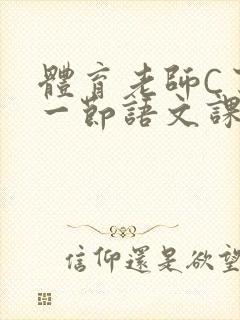 體育老師C
一節語文課
信仰還是欲望